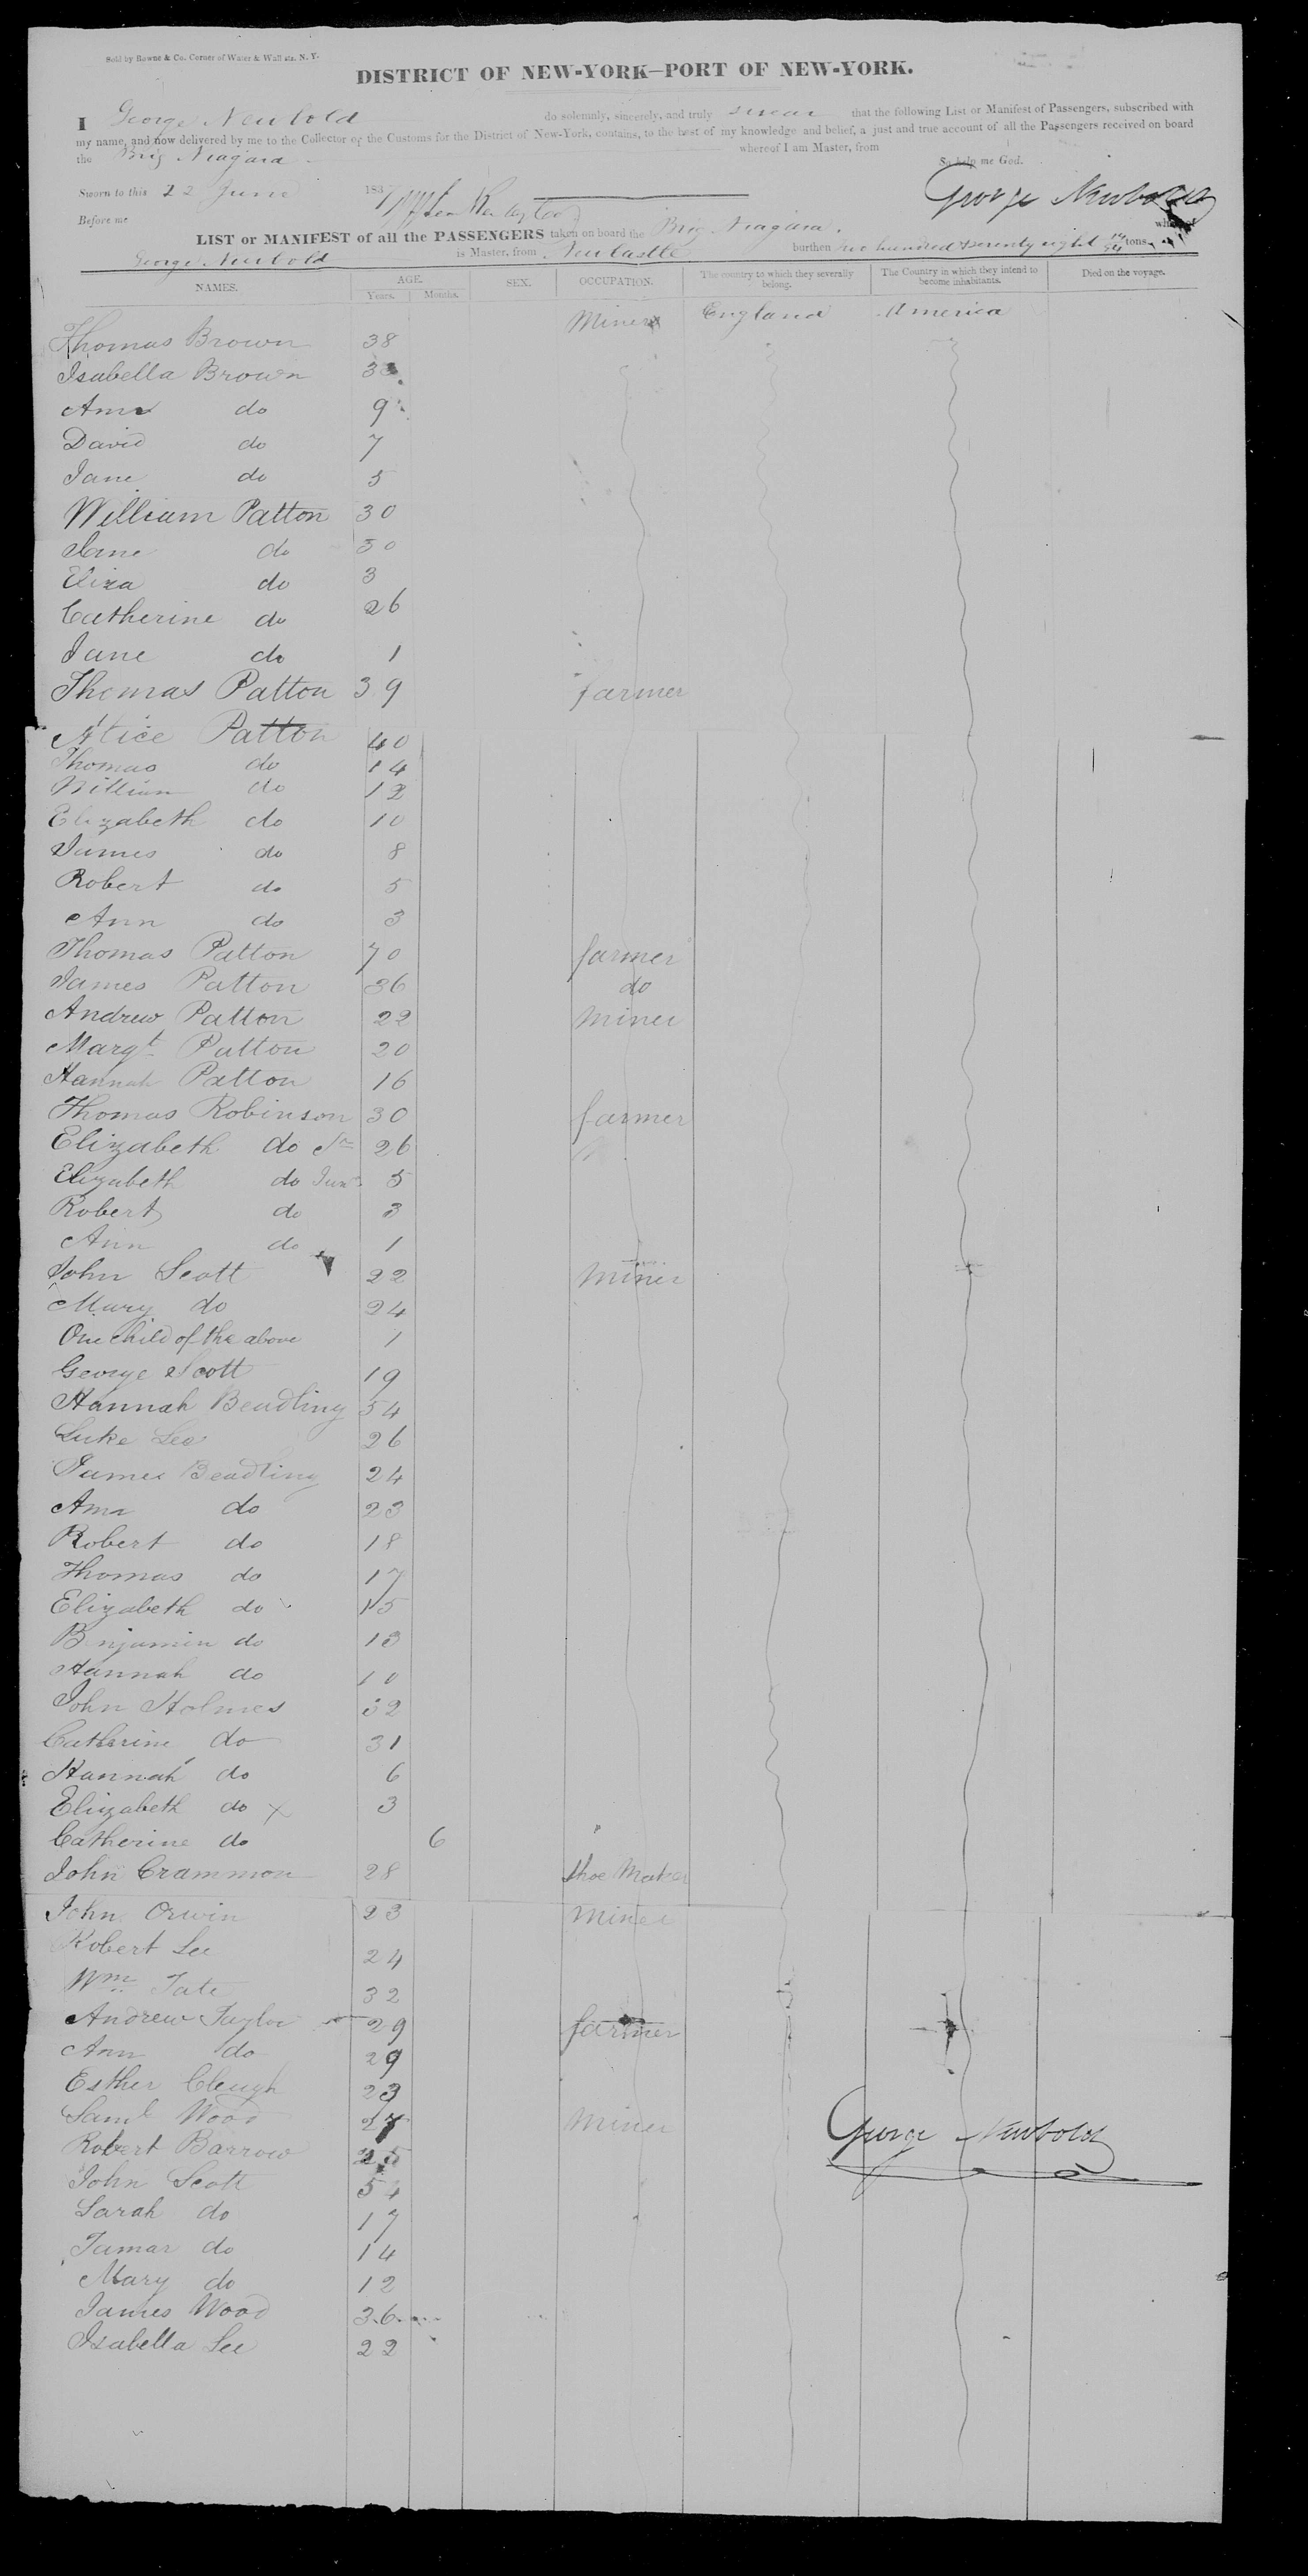 Sold by Bowne & Co. Corner of Water & Wall sts. N. Y.
DISTRICT OF NEW-YORK—PORT OF NEW-YORK.
I George Newbold do solemnly, sincerely, and truly swear that the following List or Manifest of Passengers, subscribed with
my name, and now delivered by me to the Collector of the Customs for the District of New-York, contains, to the best of my knowledge and belief, a just and true account of all the Passengers received on board
the Brig Niagara whereof I am Master, from
So help me God.
Sworn to this 22 June 183
George Newbold
Before me
LIST or MANIFEST of all the PASSENGERS taken on board the Brig Niagara whereof
George Newbold is Master, from Newcastle burthen two hundred & seventy eight tons
NAMES. AGE. SEX. OCCUPATION. The country to which they severally belong. The Country in which they intend to become inhabitants. Died on the voyage.
Years. Months.
Miner England America
Thomas Brown 38
Isabella Brown
Ann do 9
David do 7
Jane do 5
William Patton 30
Jane do 30
Eliza do 3
Catherine do 26
Jane do 1
Thomas Patton 39 farmer
Alice Patton 40
Thomas do 14
William do 12
Elizabeth do 10
James do 8
Robert do 5
Ann do 3
Thomas Patton 70 farmer
James Patton 36 do
Andrew Patton 22 Miner
Margt Patton 20
Hannah Patton 16
Thomas Robinson 30 farmer
Elizabeth do Sr 26
Elizabeth do Junr 5
Robert do 3
Ann do 1
John Scott 22 Miner
Mary do 24
One child of the above 1
George Scott 19
Hannah Beadling 54
Luke Lee 26
James Beadling 24
Ann do 23
Robert do 18
Thomas do 17
Elizabeth do 15
Benjamin do 13
Hannah do 10
John Holmes 32
Catherine do 31
Hannah do 6
Elizabeth do x 3
Catherine do 6
John Crammon 28 Shoe Maker
John Orwin 23 Miner
Robert Lee 24
Wm Tate 32
Andrew Taylor 29 farmer
Ann do 29
Esther Cleugh 23
Saml Wood 27 Miner
George Newbold
Robert Barrow 25
John Scott 54
Sarah do 17
Tamar do 14
Mary do 12
James Wood 36
Isabella Lee 22